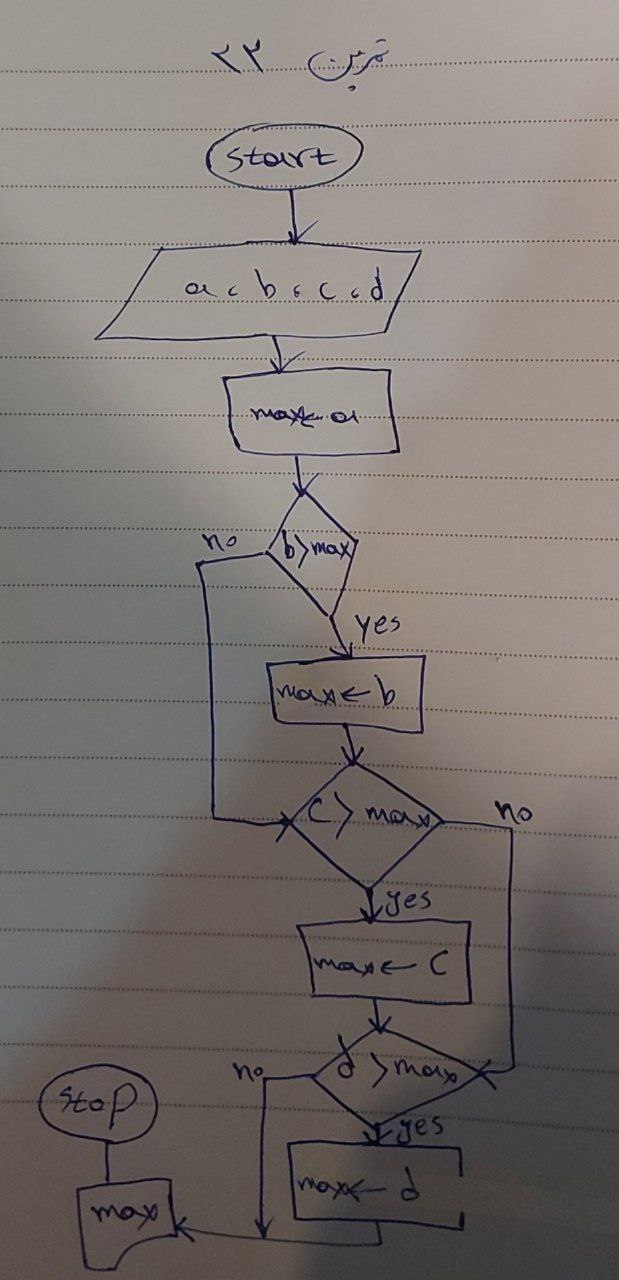 تمرین ۲۳
start
a، b، c، d
max ← a
b > max
no
yes
max ← b
c > max
no
yes
max ← c
d > max
no
yes
max ← d
max
stop